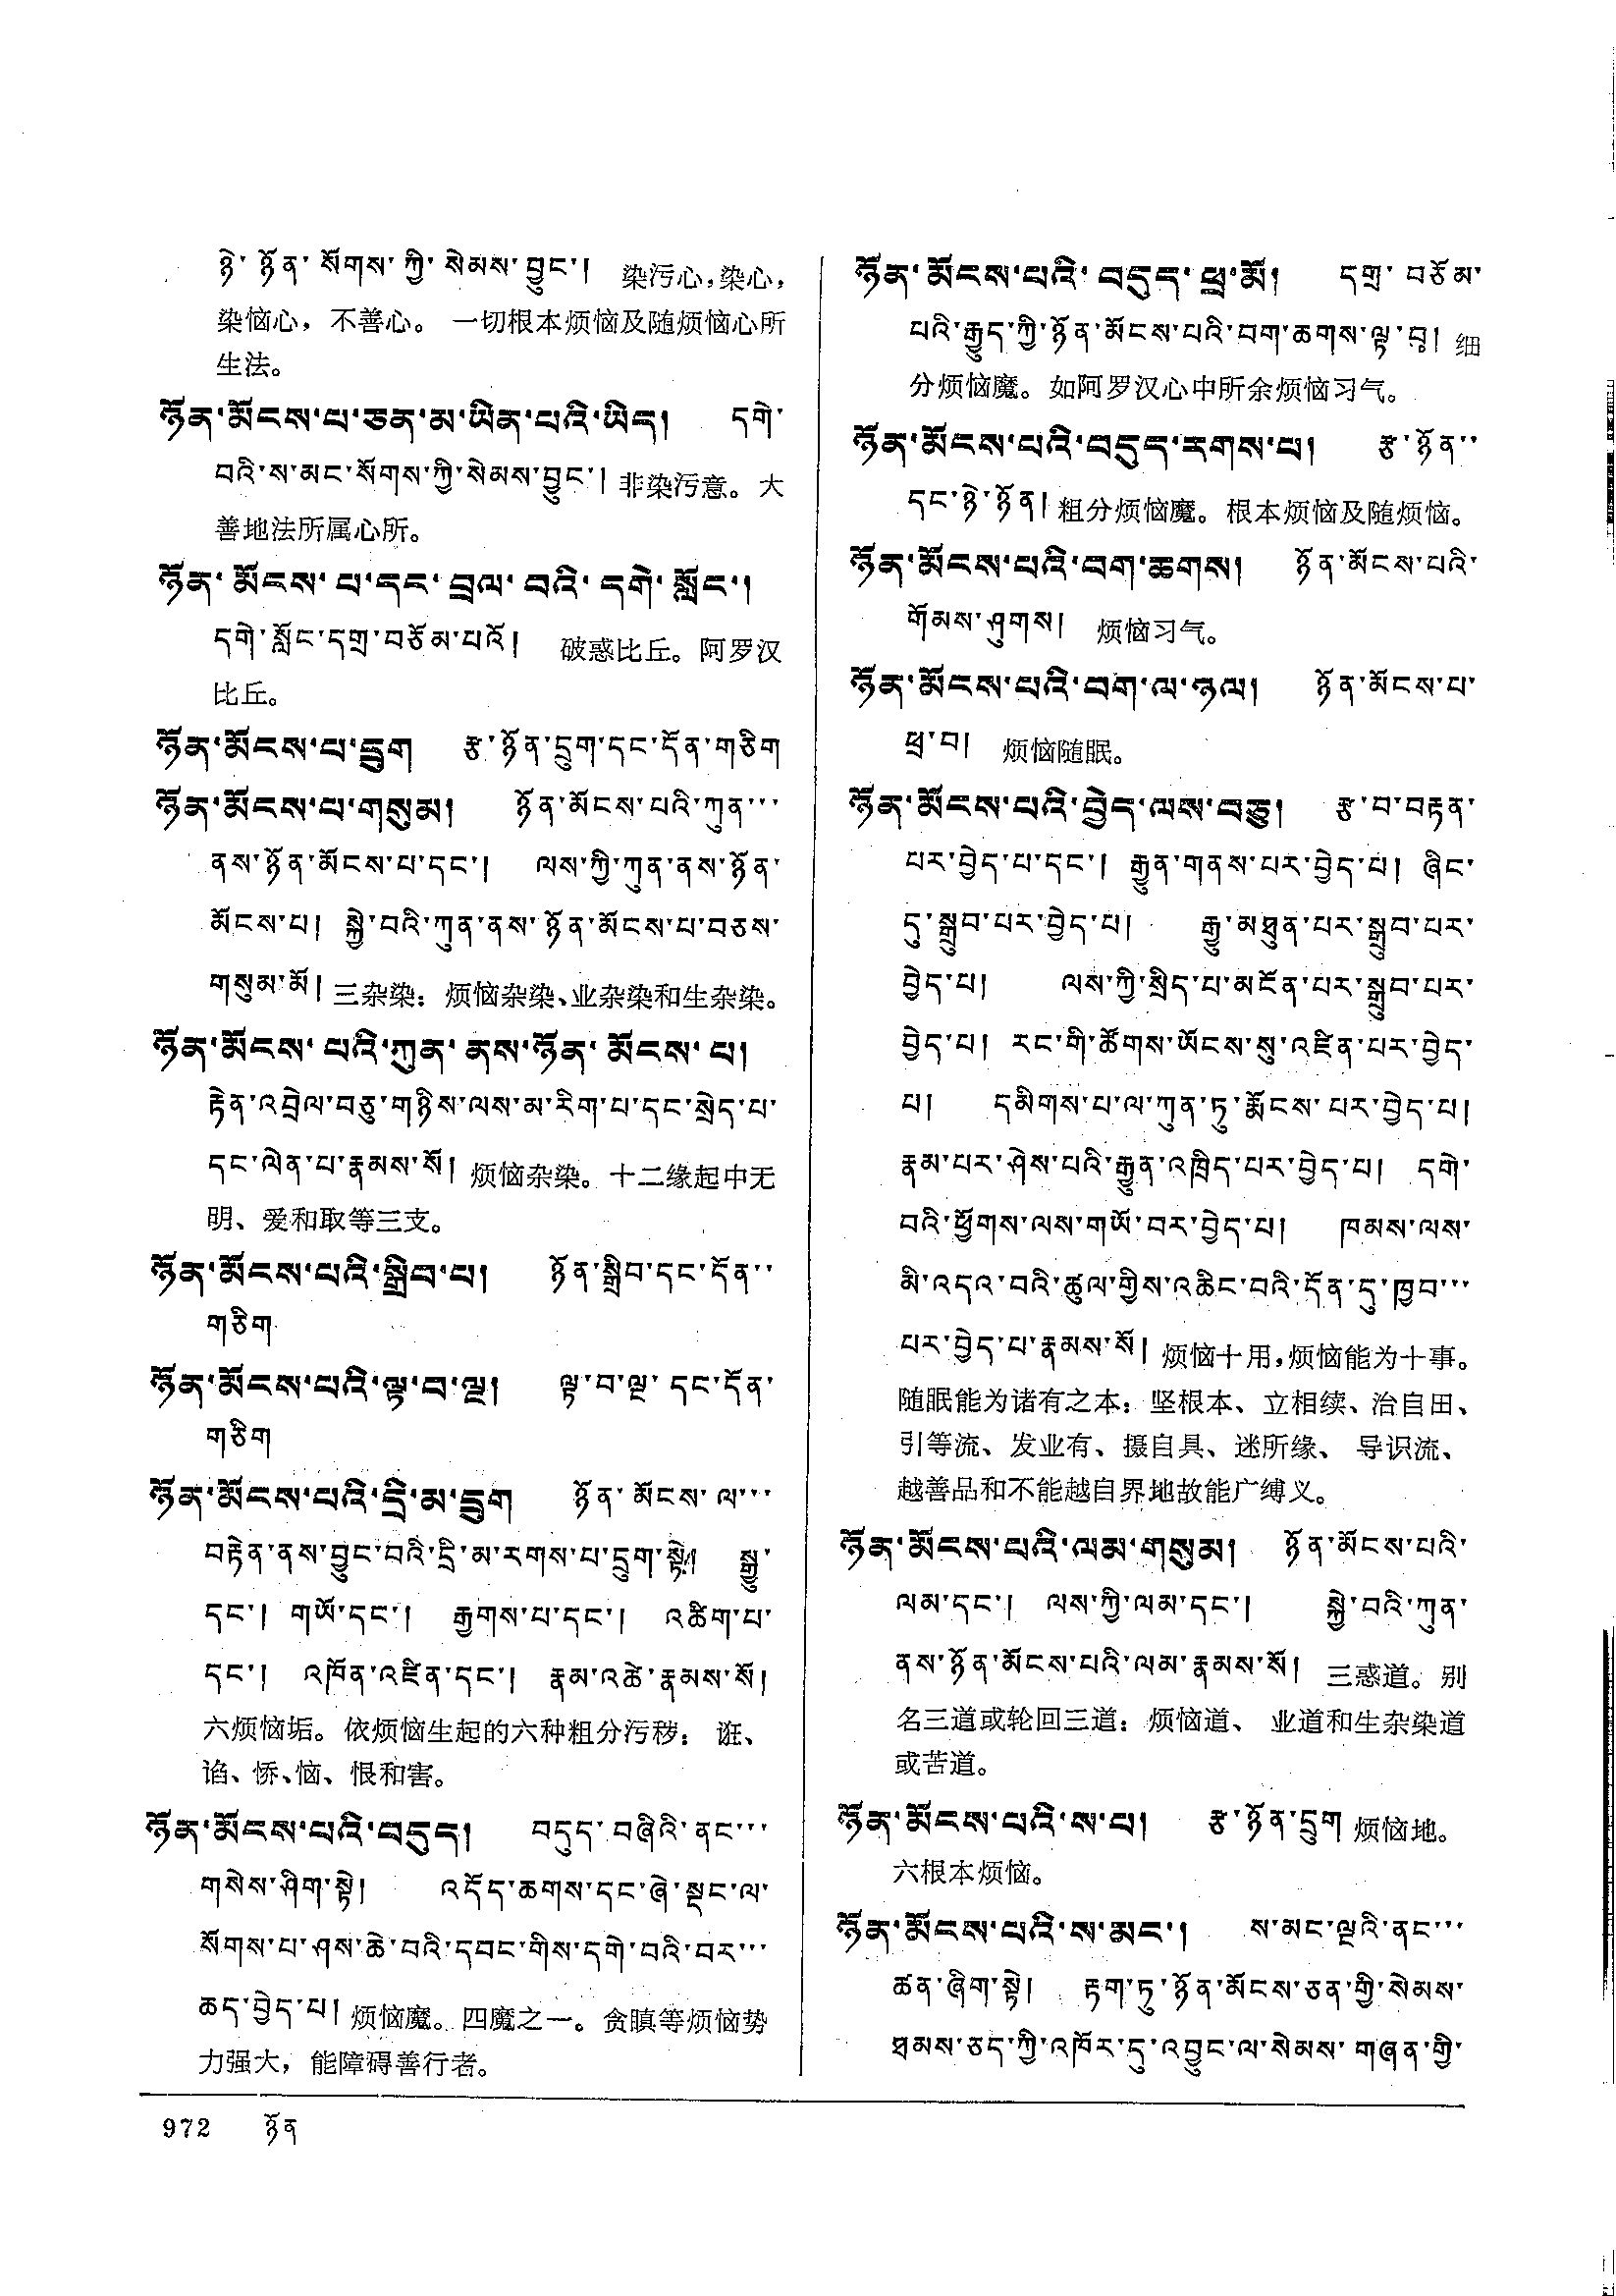 ཉེ་ ཉོན་ སོགས་ ཀྱི་ སེམས་ བྱུང་། 染污心，染心，
染恼心，不善心。 一切根本烦恼及随烦恼心所
生法。
ཉོན་མོངས་པ་ཅན་མ་ཡིན་པའི་ཡིད། དགེ་
བའི་ས་མང་སོགས་ཀྱི་སེམས་བྱུང་། 非染污意。大
善地法所属心所。
ཉོན་ མོངས་ པ་དང་ བྲལ་ བའི་ དགེ་ སློང་།
དགེ་སློང་དགྲ་བཅོམ་པའོ། 破惑比丘。阿罗汉
比丘。
ཉོན་མོངས་པ་དྲུག རྩ་ཉོན་དྲུག་དང་དོན་གཅིག
ཉོན་མོངས་པ་གསུམ། ཉོན་མོངས་པའི་ཀུན་་་
ནས་ཉོན་མོངས་པ་དང་། ལས་ཀྱི་ཀུན་ནས་ཉོན་
མོངས་པ། སྐྱེ་བའི་ཀུན་ནས་ ཉོན་མོངས་པ་བཅས་
གསུམ་མོ། 三杂染：烦恼杂染、业杂染和生杂染。
ཉོན་མོངས་ པའི་ཀུན་ ནས་ཉོན་ མོངས་ པ།
རྟེན་འབྲེལ་བཅུ་གཉིས་ལས་མ་རིག་པ་དང་སྲེད་པ་
དང་ལེན་པ་རྣམས་སོ། 烦恼杂染。十二缘起中无
明、爱和取等三支。
ཉོན་མོངས་པའི་སྒྲིབ་པ། ཉོན་སྒྲིབ་དང་དོན་་
གཅིག
ཉོན་མོངས་པའི་ལྟ་བ་ལྔ། ལྟ་བ་ལྔ་ དང་དོན་
གཅིག
ཉོན་མོངས་པའི་དྲི་མ་དྲུག ཉོན་ མོངས་ ལ་་་
བརྟེན་ནས་བྱུང་བའི་དྲི་མ་རགས་པ་དྲུག་སྟེ། སྒྱུ་
དང་། གཡོ་དང་། རྒྱགས་པ་དང་། འཚིག་པ་
དང་། འཁོན་འཛིན་དང་། རྣམ་འཚེ་རྣམས་སོ།
六烦恼垢。依烦恼生起的六种粗分污秽： 诳、
谄、㤭、恼、恨和害。
ཉོན་མོངས་པའི་བདུད། བདུད་བཞིའི་ནང་་་
གསེས་ཤིག་སྟེ། འདོད་ཆགས་དང་ཞེ་སྡང་ལ་
སོགས་པ་ཤས་ཆེ་བའི་དབང་གིས་དགེ་བའི་བར་་་
ཆད་བྱེད་པ། 烦恼魔。四魔之一。贪瞋等烦恼势
力强大，能障碍善行者。
ཉོན་མོངས་པའི་ བདུད་ ཕྲ་མོ། དགྲ་ བཅོམ་
པའི་རྒྱུད་ཀྱི་ཉོན་མོངས་པའི་བག་ཆགས་ལྟ་བུ། 细
分烦恼魔。如阿罗汉心中所余烦恼习气。
ཉོན་མོངས་པའི་བདུད་རགས་པ། རྩ་ཉོན་་
དང་ཉེ་ཉོན། 粗分烦恼魔。根本烦恼及随烦恼。
ཉོན་མོངས་པའི་བག་ཆགས། ཉོན་མོངས་པའི་
གོམས་ཤུགས། 烦恼习气。
ཉོན་མོངས་པའི་བག་ལ་ཉལ། ཉོན་མོངས་པ་
ཕྲ་བ། 烦恼随眠。
ཉོན་མོངས་པའི་བྱེད་ལས་བཅུ། རྩ་བ་བརྟན་
པར་བྱེད་པ་དང་། རྒྱུན་གནས་པར་བྱེད་པ། ཞིང་
དུ་སྒྲུབ་པར་བྱེད་པ། རྒྱུ་མཐུན་པར་སྒྲུབ་པར་
བྱེད་པ། ལས་ཀྱི་སྲིད་པ་མངོན་པར་སྒྲུབ་པར་
བྱེད་པ། རང་གི་ཚོགས་ཡོངས་སུ་འཛིན་པར་བྱེད་
པ། དམིགས་པ་ལ་ཀུན་ཏུ་རྨོངས་ པར་བྱེད་པ།
རྣམ་པར་ཤེས་པའི་རྒྱུན་འཁྲིད་པར་བྱེད་པ། དགེ་
བའི་ཕྱོགས་ལས་གཡོ་བར་བྱེད་པ། ཁམས་ལས་
མི་འདའ་བའི་ཚུལ་གྱིས་འཆིང་བའི་དོན་དུ་ཁྱབ་་་
པར་བྱེད་པ་རྣམས་སོ། 烦恼十用，烦恼能为十事。
随眠能为诸有之本：坚根本、立相续、治自田、
引等流、发业有、摄自具、迷所缘、 导识流、
越善品和不能越自界地故能广缚义。
ཉོན་མོངས་པའི་ལམ་གསུམ། ཉོན་མོངས་པའི་
ལམ་དང་། ལས་ཀྱི་ལམ་དང་། སྐྱེ་བའི་ཀུན་
ནས་ཉོན་མོངས་པའི་ལམ་རྣམས་སོ། 三惑道。别
名三道或轮回三道：烦恼道、 业道和生杂染道
或苦道。
ཉོན་མོངས་པའི་ས་པ། རྩ་ཉོན་དྲུག 烦恼地。
六根本烦恼。
ཉོན་མོངས་པའི་ས་མང་། ས་མང་ལྔའི་ནང་་་
ཚན་ཞིག་སྟེ། རྟག་ཏུ་ཉོན་མོངས་ཅན་གྱི་སེམས་
ཐམས་ཅད་ཀྱི་འཁོར་དུ་འབྱུང་ལ་སེམས་ གཞན་གྱི་
972 ཉོན